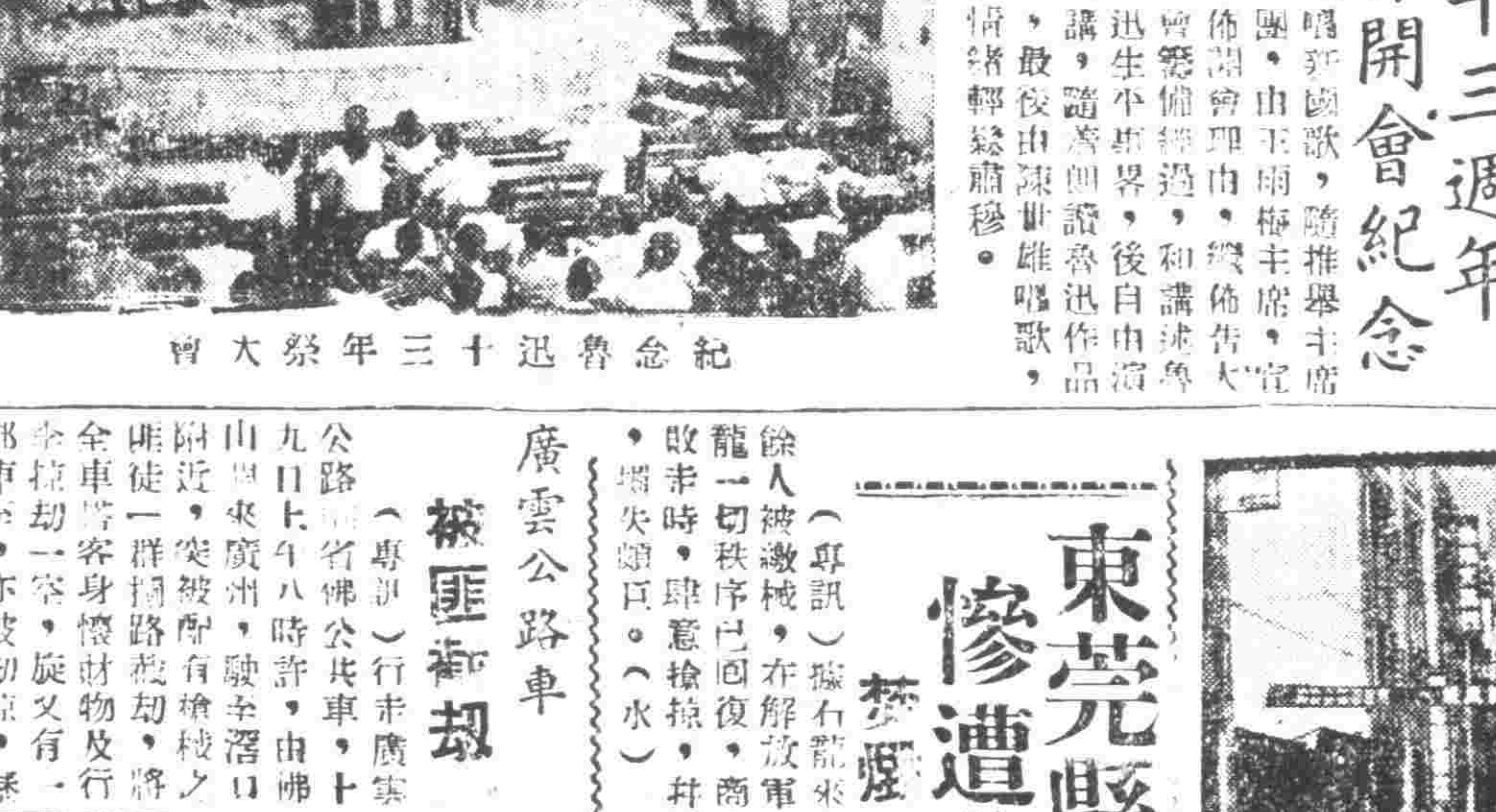 十三週年
開會紀念
唱新國歌，隨推舉主席
團，由王雨梅主席，宣
佈開會理由，繼佈告大
會籌備經過，和講述魯
迅生平事畧，後自由演
講，隨着朗讀魯迅作品
，最後由陳世雄唱歌，
情緒輕鬆肅穆。
紀念魯迅十三年祭大會
東莞縣
慘遭
焚
（專訊）據石龍來
餘人被繳械，在解放軍
龍一切秩序已回復，商
敗走時，肆意搶掠，幷
，損失頗巨。（水）
廣雲公路車
被匪截劫
（專訊）行走廣雲
公路省佛公共車，十
九日上午八時許，由佛
山開來廣州，駛至滘口
附近，突被配有槍械之
匪徒一群攔路截劫，將
全車搭客身懷財物及行
李掠劫一空，旋又有一